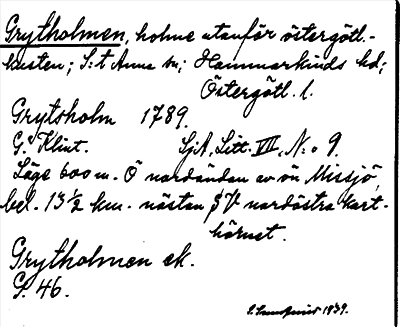 Grytholmen, holme utanför östergötl.-
kusten; S:t Anna sn; Hammarkinds hd;
Östergötl. l.
Grytsholm 1789.
G. Klint. SjA, Litt. VII, N:o 9.
Läge 600 m. Ö nordändan av ön Missjö,
bel. 13 1/2 km. nästan V nordöstra kart-
hörnet.
Grytholmen ek.
G. 46.
S. Sundqvist 1939.